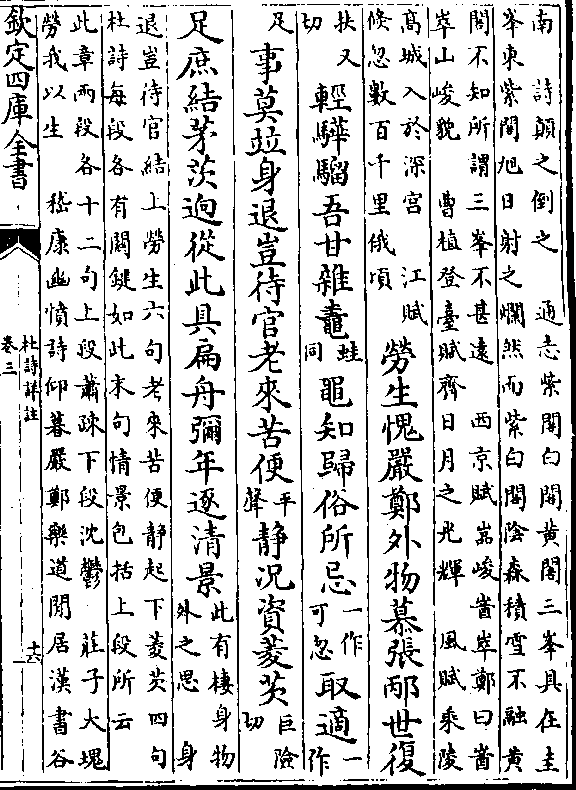 南　詩顛之倒之　通志紫閣白閣黃閣三峯具在圭
峯東紫閣旭日射之爛然而紫白閣陰森積雪不融黃
閣不知所謂三峯不甚遠　西京賦嵓峻崷崒鄭曰崷
崒山峻貌　曹植登臺賦齊日月之光輝　風賦乘陵
高城入於深宮　江賦
倏忽數百千里俄頃
勞生愧嚴鄭外物慕張邴世復
扶又切輕驊騮吾甘雜鼃蛙同黽知歸俗所忌一作可忽取適一作
足事莫竝身退豈待官老來苦便平聲静況資菱芡巨險切
足庶結茅茨迥從此具扁舟彌年逐清景此有棲身物外之思　身
退豈待官結上勞生六句老來苦便静起下菱芡四句
杜詩每段各有關鍵如此末句情景包括上段所云
此章兩段各十二句上段蕭疎下段沈鬱　莊子大塊
勞我以生　嵇康幽憤詩仰慕嚴鄭樂道閒居漢書谷
欽定四庫全書
杜詩詳註
卷三
十六